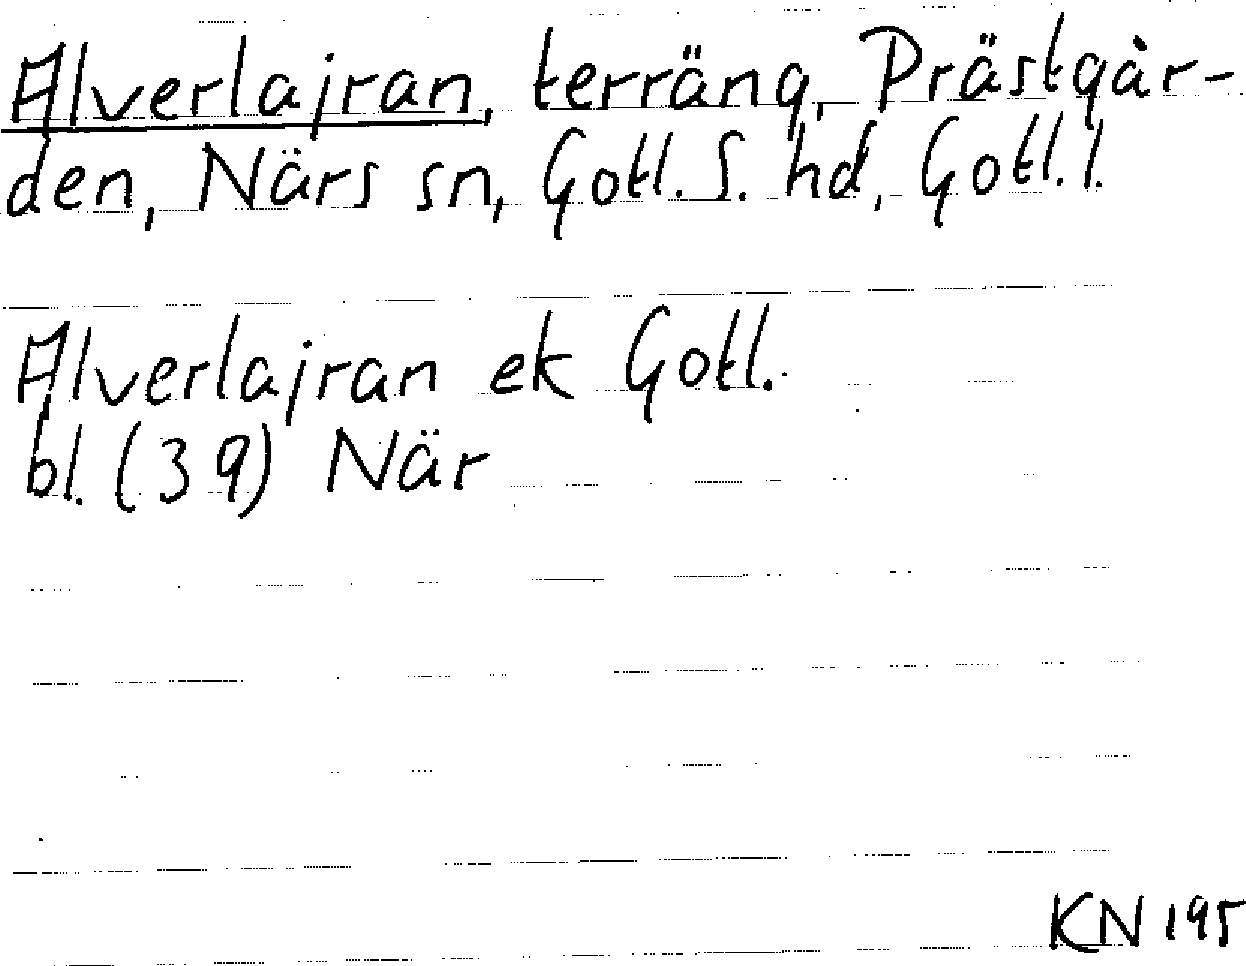 Alverlajran, terräng, Prästgår-
den, Närs sn, Gotl. S. hd, Gotl. l.
Alverlajran ek Gotl.
bl. (39) När
KN 195